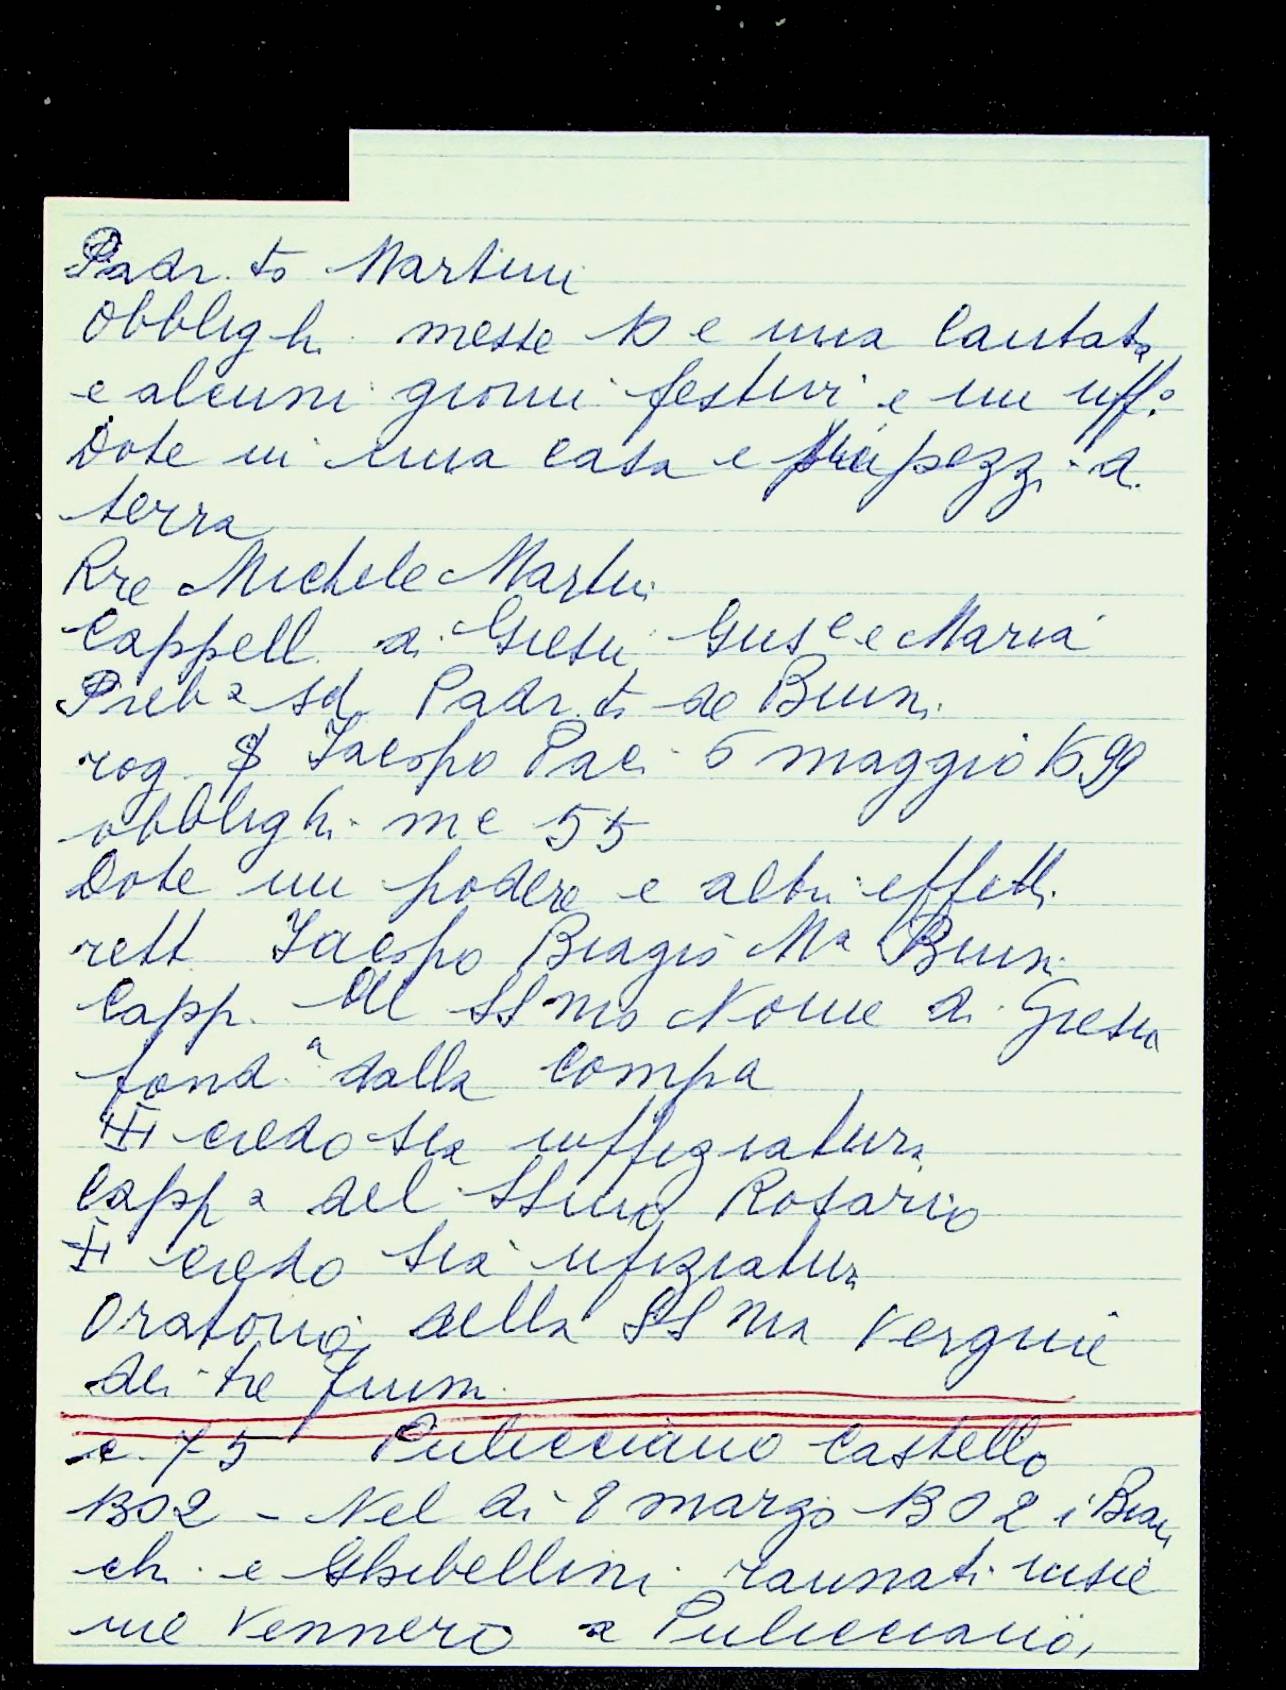 Padr.to Martini
Obbligh. messe 10 e una cantata
e alcuni giorni festivi e un uff.o
Dote in una casa e più pezzi di
terra
Rre Michele Martini
Cappell. di Giesù Gius.e e Maria
Preb.a sd. Padr.to de Buini
rog. Jacopo Paci 5 maggio 1599
obblighi me 55
Dote un podere e altri effetti
rett Jacopo Biagio Ma Buini
Capp. del SSmo Nome di Giesù
fond.a dalla Compa
credo sia uffiziatura
Capp a del SSmo Rosario
credo sia ufiziatura
Oratorio della SSma Vergine
dei tre fiumi
c. 75 Pulicciano Castello
1302 - Nel di 8 marzo 1302 i Bian
chi e Ghibellini raunati insie
me vennero a Pulicciano,